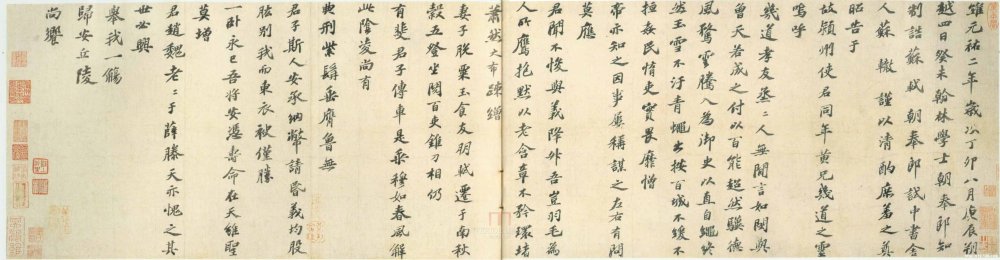 維元祐二年歲次丁卯八月庚辰朔
越四日癸未翰林學士朝奉郎知
制誥蘇軾朝奉郎試中書舍
人蘇轍謹以清酌庶羞之奠
昭告于
故潁州使君同年黃兄幾道之靈
嗚呼
幾道孝友烝二人無閒言如閔與
曾天若成之付以百能超然驥德
風騖雲騰入為御史以直自繩終
然玉雪不汙青蠅出按百城不緩不
絙姦民惰吏實畏靡憎
帝亦知之因事屢稱謀之左右有問
莫應
君聞不悛與義降升吾豈羽毛為
人所鷹抱默以老含章不矜環堵
蕭然大布疎繒
妻子脫粟玉食友朋軾遷于南秋
穀五登坐閱百吏錐刀相仍
有斐君子傳車是乘穆如春風解
此陰凌尚有
典刑紫髯垂膺魯無
君子斯人安承納幣請昏義均股
肱別我而東衣袂僅勝
一卧永已吾將安憑壽命在天雖聖
莫增
君趙魏老二于薛滕天亦愧之其
世必興
舉我一觴
歸安丘陵
尚饗